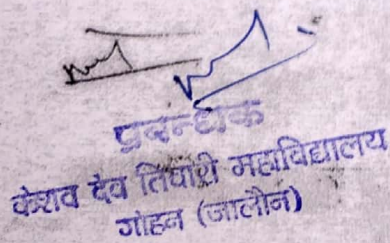 प्रबन्धक
केशव देव तिवारी महाविद्यालय
गोहन (जालौन)